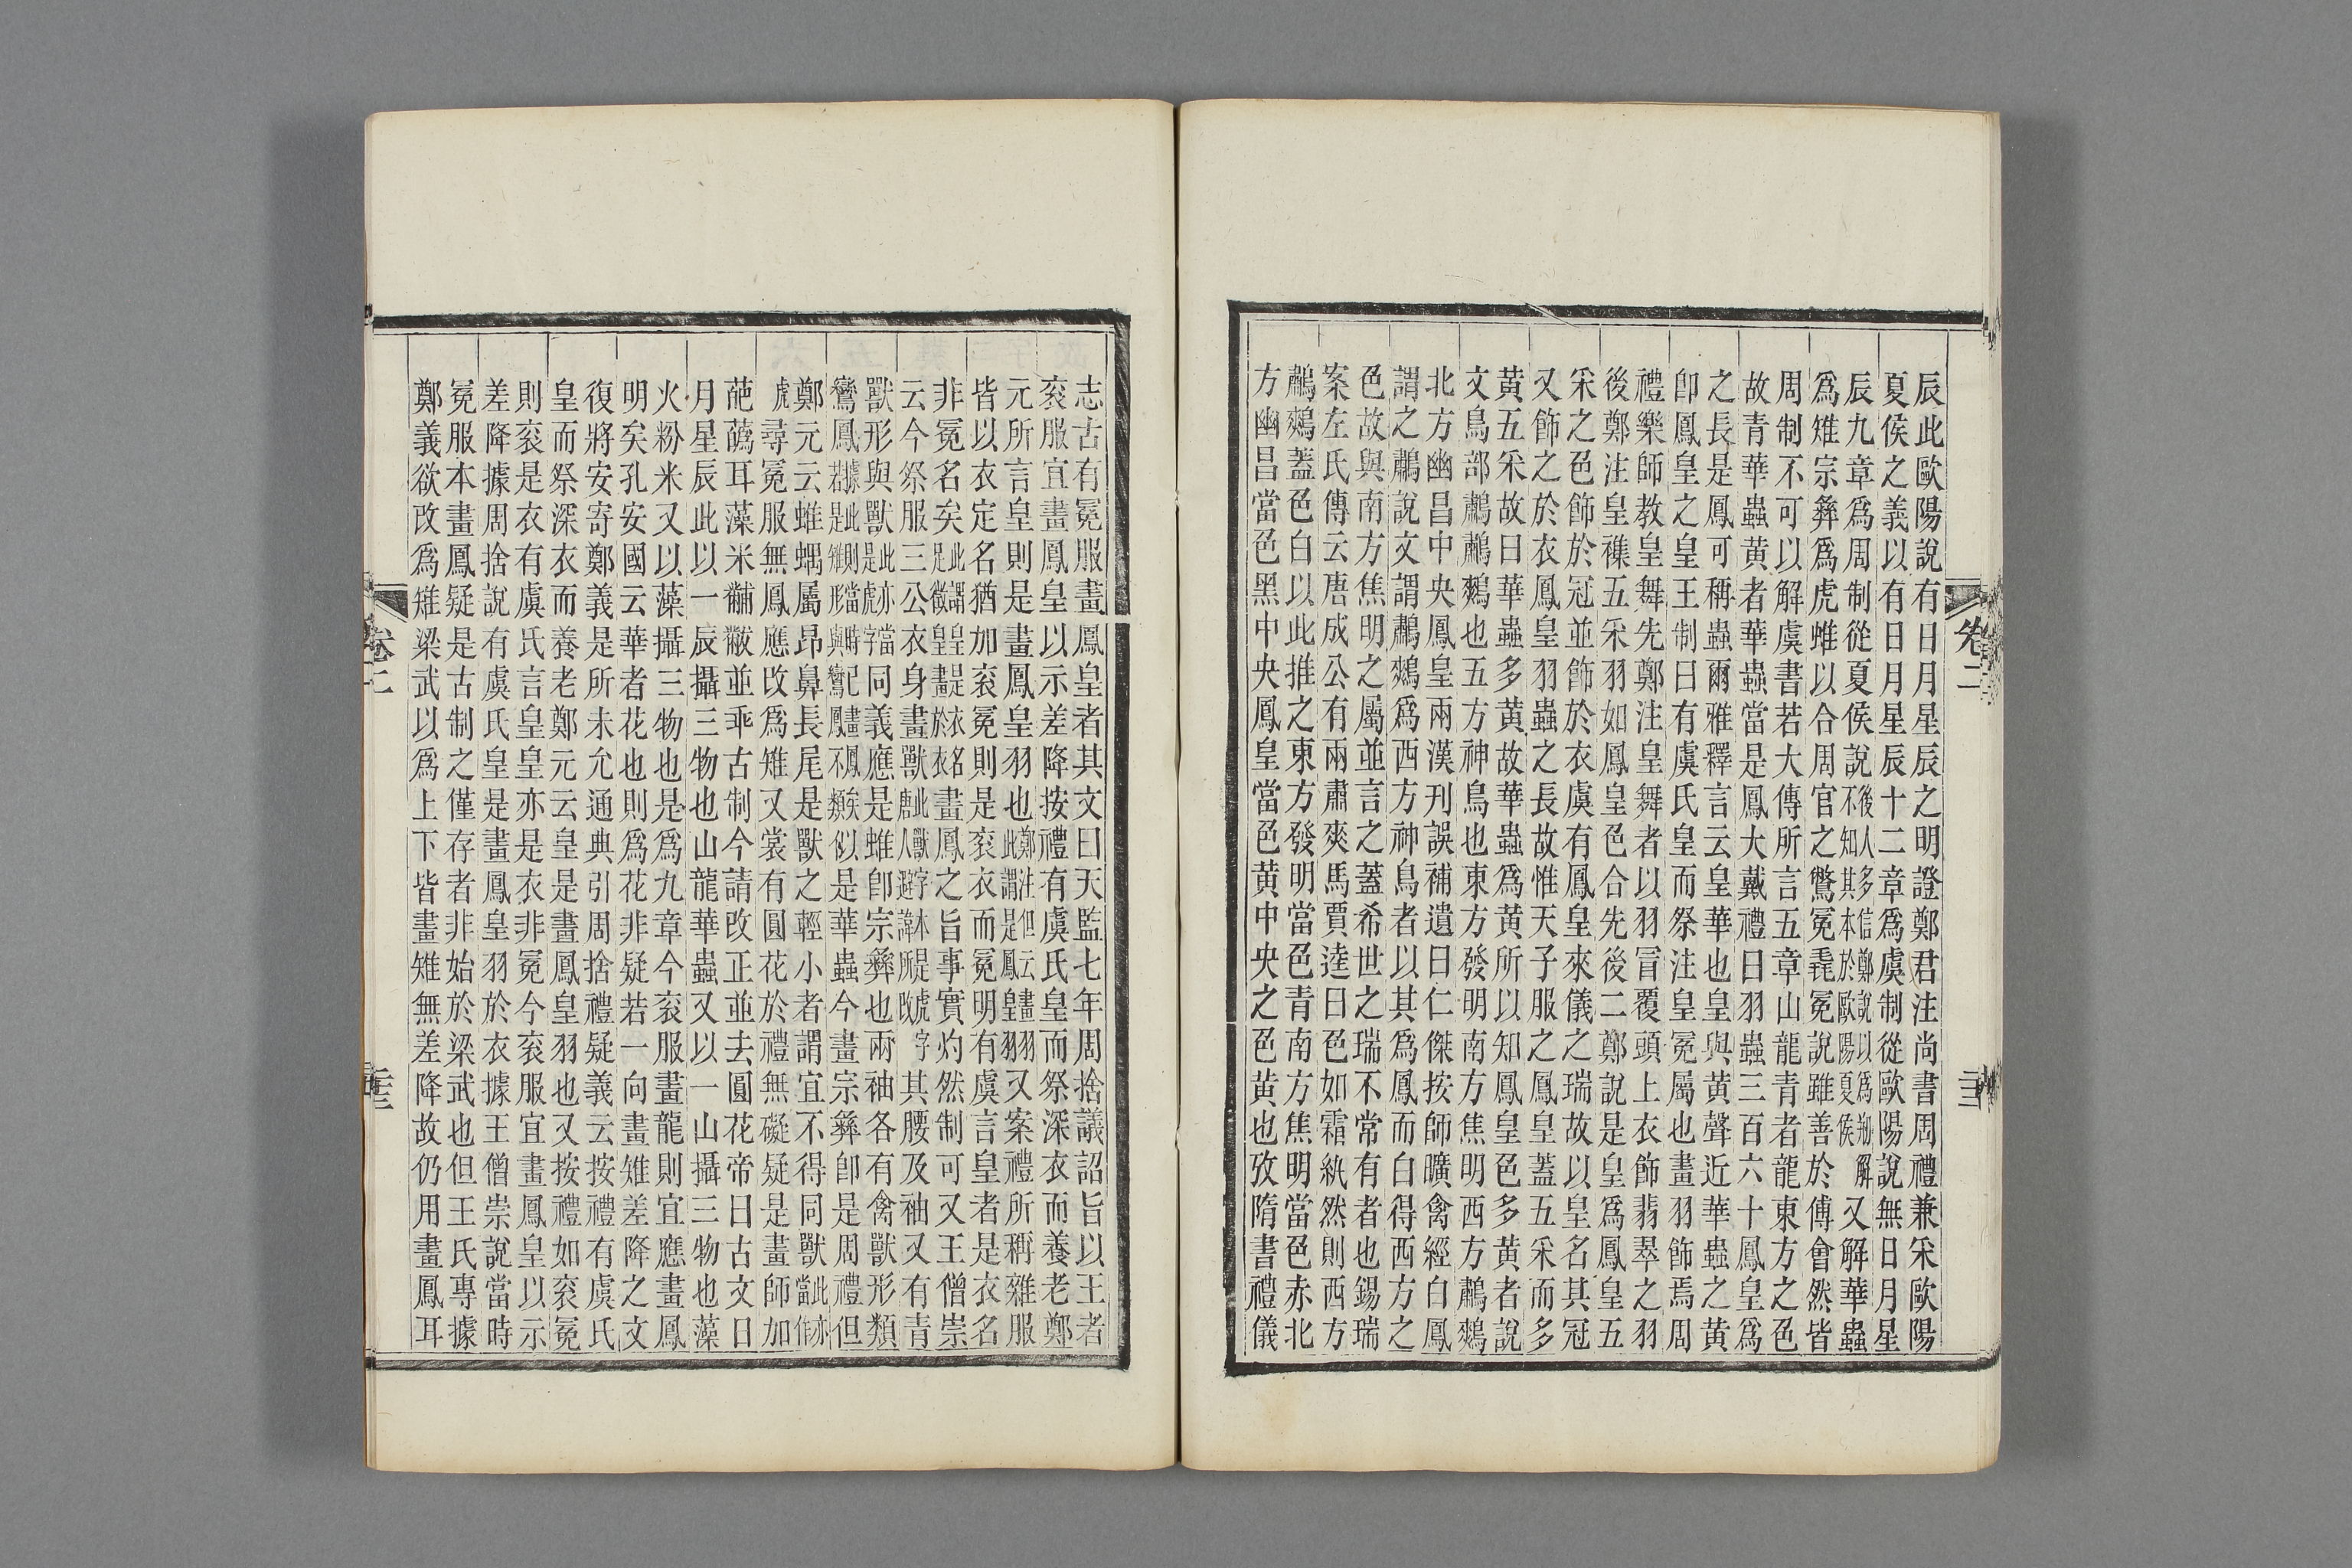 辰此歐陽說有日月星辰之明證鄭君注尚書周禮兼采歐陽
夏侯之義以有日月星辰十二章為虞制從歐陽說無日月星
辰九章為周制從夏侯說後人多信鄭說以為解不知其本於歐陽夏侯又解華蟲
為雉宗彝為虎蜼以合周官之鷩冕毳冕說雖善於傅會然皆
周制不可以解虞書若大傳所言五章山龍青者龍東方之色
故青華蟲黃者華蟲當是鳳大戴禮曰羽蟲三百六十鳳皇為
之長是鳳可稱蟲爾雅釋言云皇華也皇與黃聲近華蟲之黃
卽鳳皇之皇王制曰有虞氏皇而祭注皇冕屬也畫羽飾焉周
禮樂師教皇舞先鄭注皇舞者以羽冒覆頭上衣飾翡翠之羽
後鄭注皇襍五采羽如鳳皇色合先後二鄭說是皇為鳳皇五
采之色飾於冠並飾於衣虞有鳳皇來儀之瑞故以皇名其冠
又飾之於衣鳳皇羽蟲之長故惟天子服之鳳皇蓋五采而多
黃五采故曰華蟲多黃故華蟲為黃所以知鳳皇色多黃者說
文鳥部鷫鷫鷞也五方神鳥也東方發明南方焦明西方鷫鷞
北方幽昌中央鳳皇兩漢刊誤補遺曰仁傑按師曠禽經白鳳
謂之鷫說文謂鷫鷞為西方神鳥者以其為鳳而白得西方之
色故與南方焦明之屬並言之蓋希世之瑞不常有者也錫瑞
案左氏傳云唐成公有兩肅爽馬賈逵曰色如霜紈然則西方
鷫鷞蓋色白以此推之東方發明當色青南方焦明當色赤北
方幽昌當色黑中央鳳皇當色黃中央之色黃也攷隋書禮儀
卷二
志古有冕服畫鳳皇者其文曰天監七年周捨議詔旨以王者
袞服宜畫鳳皇以示差降按禮有虞氏皇而祭深衣而養老鄭
元所言皇則是畫鳳皇羽也鄭注但云畫羽此謂是鳳皇羽又案禮所稱雜服
皆以衣定名猶加袞冕則是袞衣而冕明有虞言皇者是衣名
非冕名矣此謂皇是衣名足徵皇畫於衣畫鳳之旨事實灼然制可又王僧崇
云今祭服三公衣身畫獸此獸字本是虎字唐人避諱所改其腰及袖又有青
獸形與獸此亦當是虎字同義應是蜼卽宗彝也兩袖各有禽獸形類
鸞鳳據此則當時已畫鳳矣若是雉形與鸞鳳不類似是華蟲今畫宗彝卽是周禮但
鄭元云蜼蝟屬昂鼻長尾是獸之輕小者謂宜不得同獸此亦當作
虎尋冕服無鳳應改為雉又裳有圓花於禮無礙疑是畫師加
葩蘤耳藻米黼黻並乖古制今請改正並去圓花帝曰古文日
月星辰此以一辰攝三物也山龍華蟲又以一山攝三物也藻
火粉米又以藻攝三物也是為九章今袞服畫龍則宜應畫鳳
明矣孔安國云華者花也則為花非疑若一向畫雉差降之文
復將安寄鄭義是所未允通典引周捨禮疑義云按禮有虞氏
皇而祭深衣而養老鄭元云皇是畫鳳皇羽也又按禮如袞冕
則袞是衣有虞氏言皇皇亦是衣非冕今袞服宜畫鳳皇以示
差降據周捨說有虞氏皇是畫鳳皇羽於衣據王僧崇說當時
冕服本畫鳳疑是古制之僅存者非始於梁武也但王氏專據
鄭義欲改為雉梁武以為上下皆畫雉無差降故仍用畫鳳耳
卷二